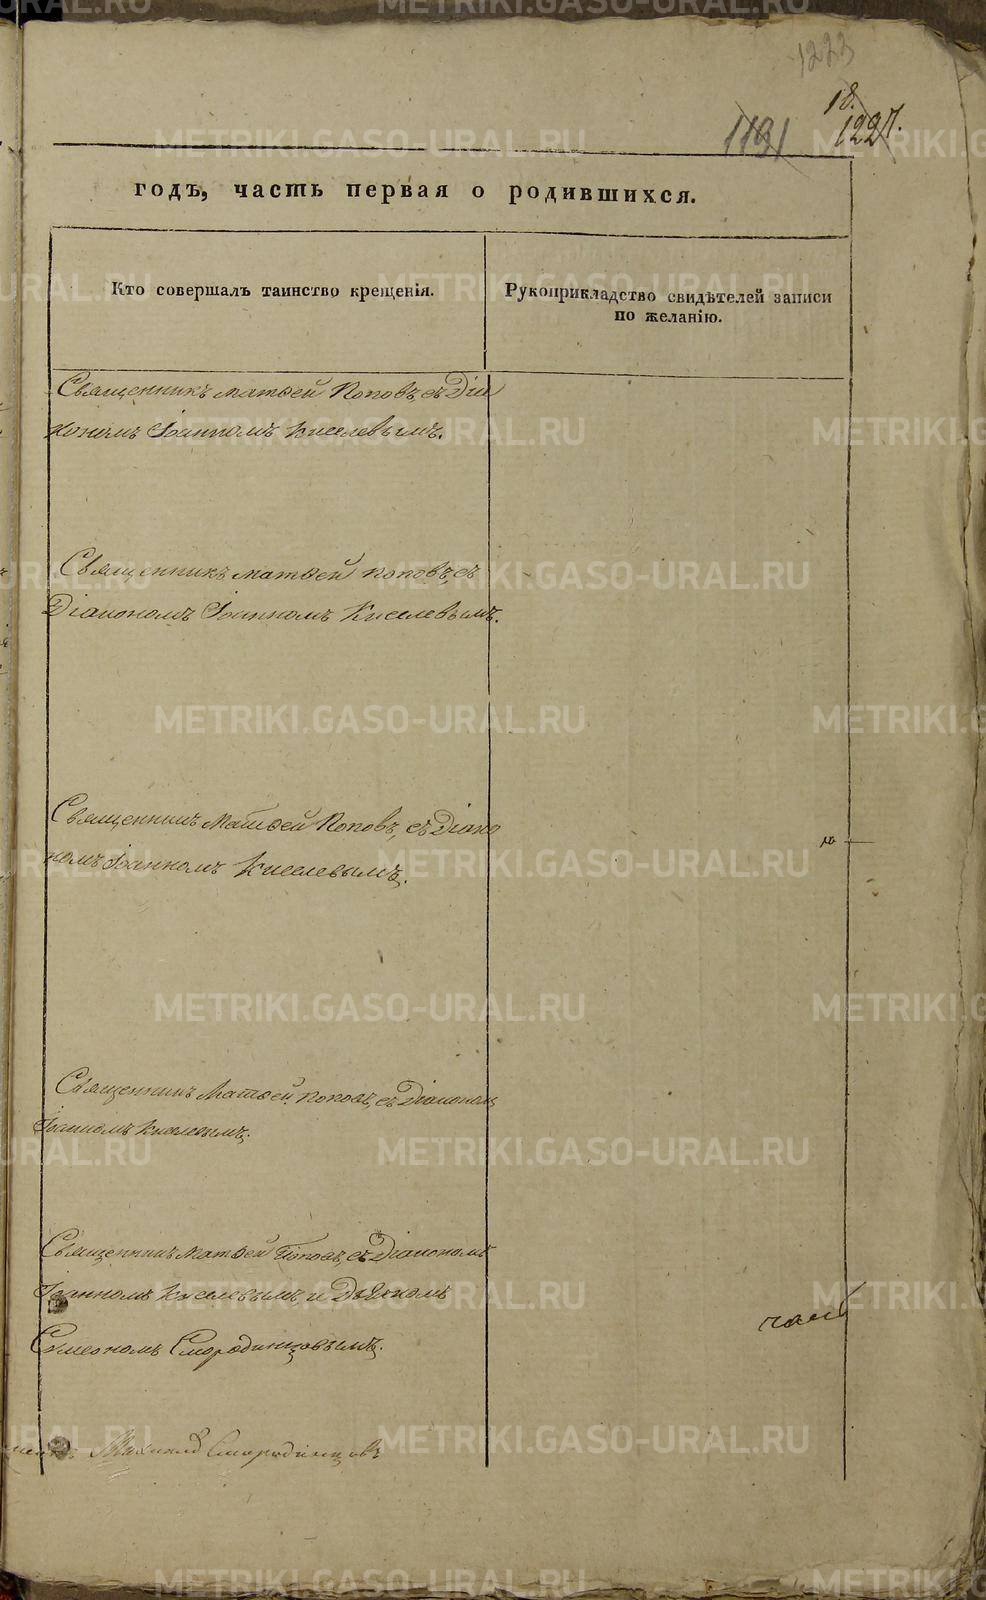 1223
18.
1191 1227.
годъ, часть первая о родившихся.
Кто совершалъ таинство крещенія.
Рукоприкладство свидѣтелей записи
по желанію.
Священникъ Матѳей Поповъ, съ Діа
кономъ Іоанномъ Киселевымъ.
Священникъ Матѳей Поповъ, съ
Діакономъ Іоанномъ Киселевымъ.
Священникъ Матѳей Поповъ, съ Діако
номъ Іоанномъ Киселевымъ.
Священникъ Матѳей Поповъ, съ Діакономъ
Іоанномъ Киселевымъ.
Священникъ Матѳей Поповъ, съ Діакономъ
Іоанномъ Киселевымъ и Дьячкомъ
Сѵмеономъ Смородинцовымъ.
Смородинцовъ
METRIKI.GASO-URAL.RU